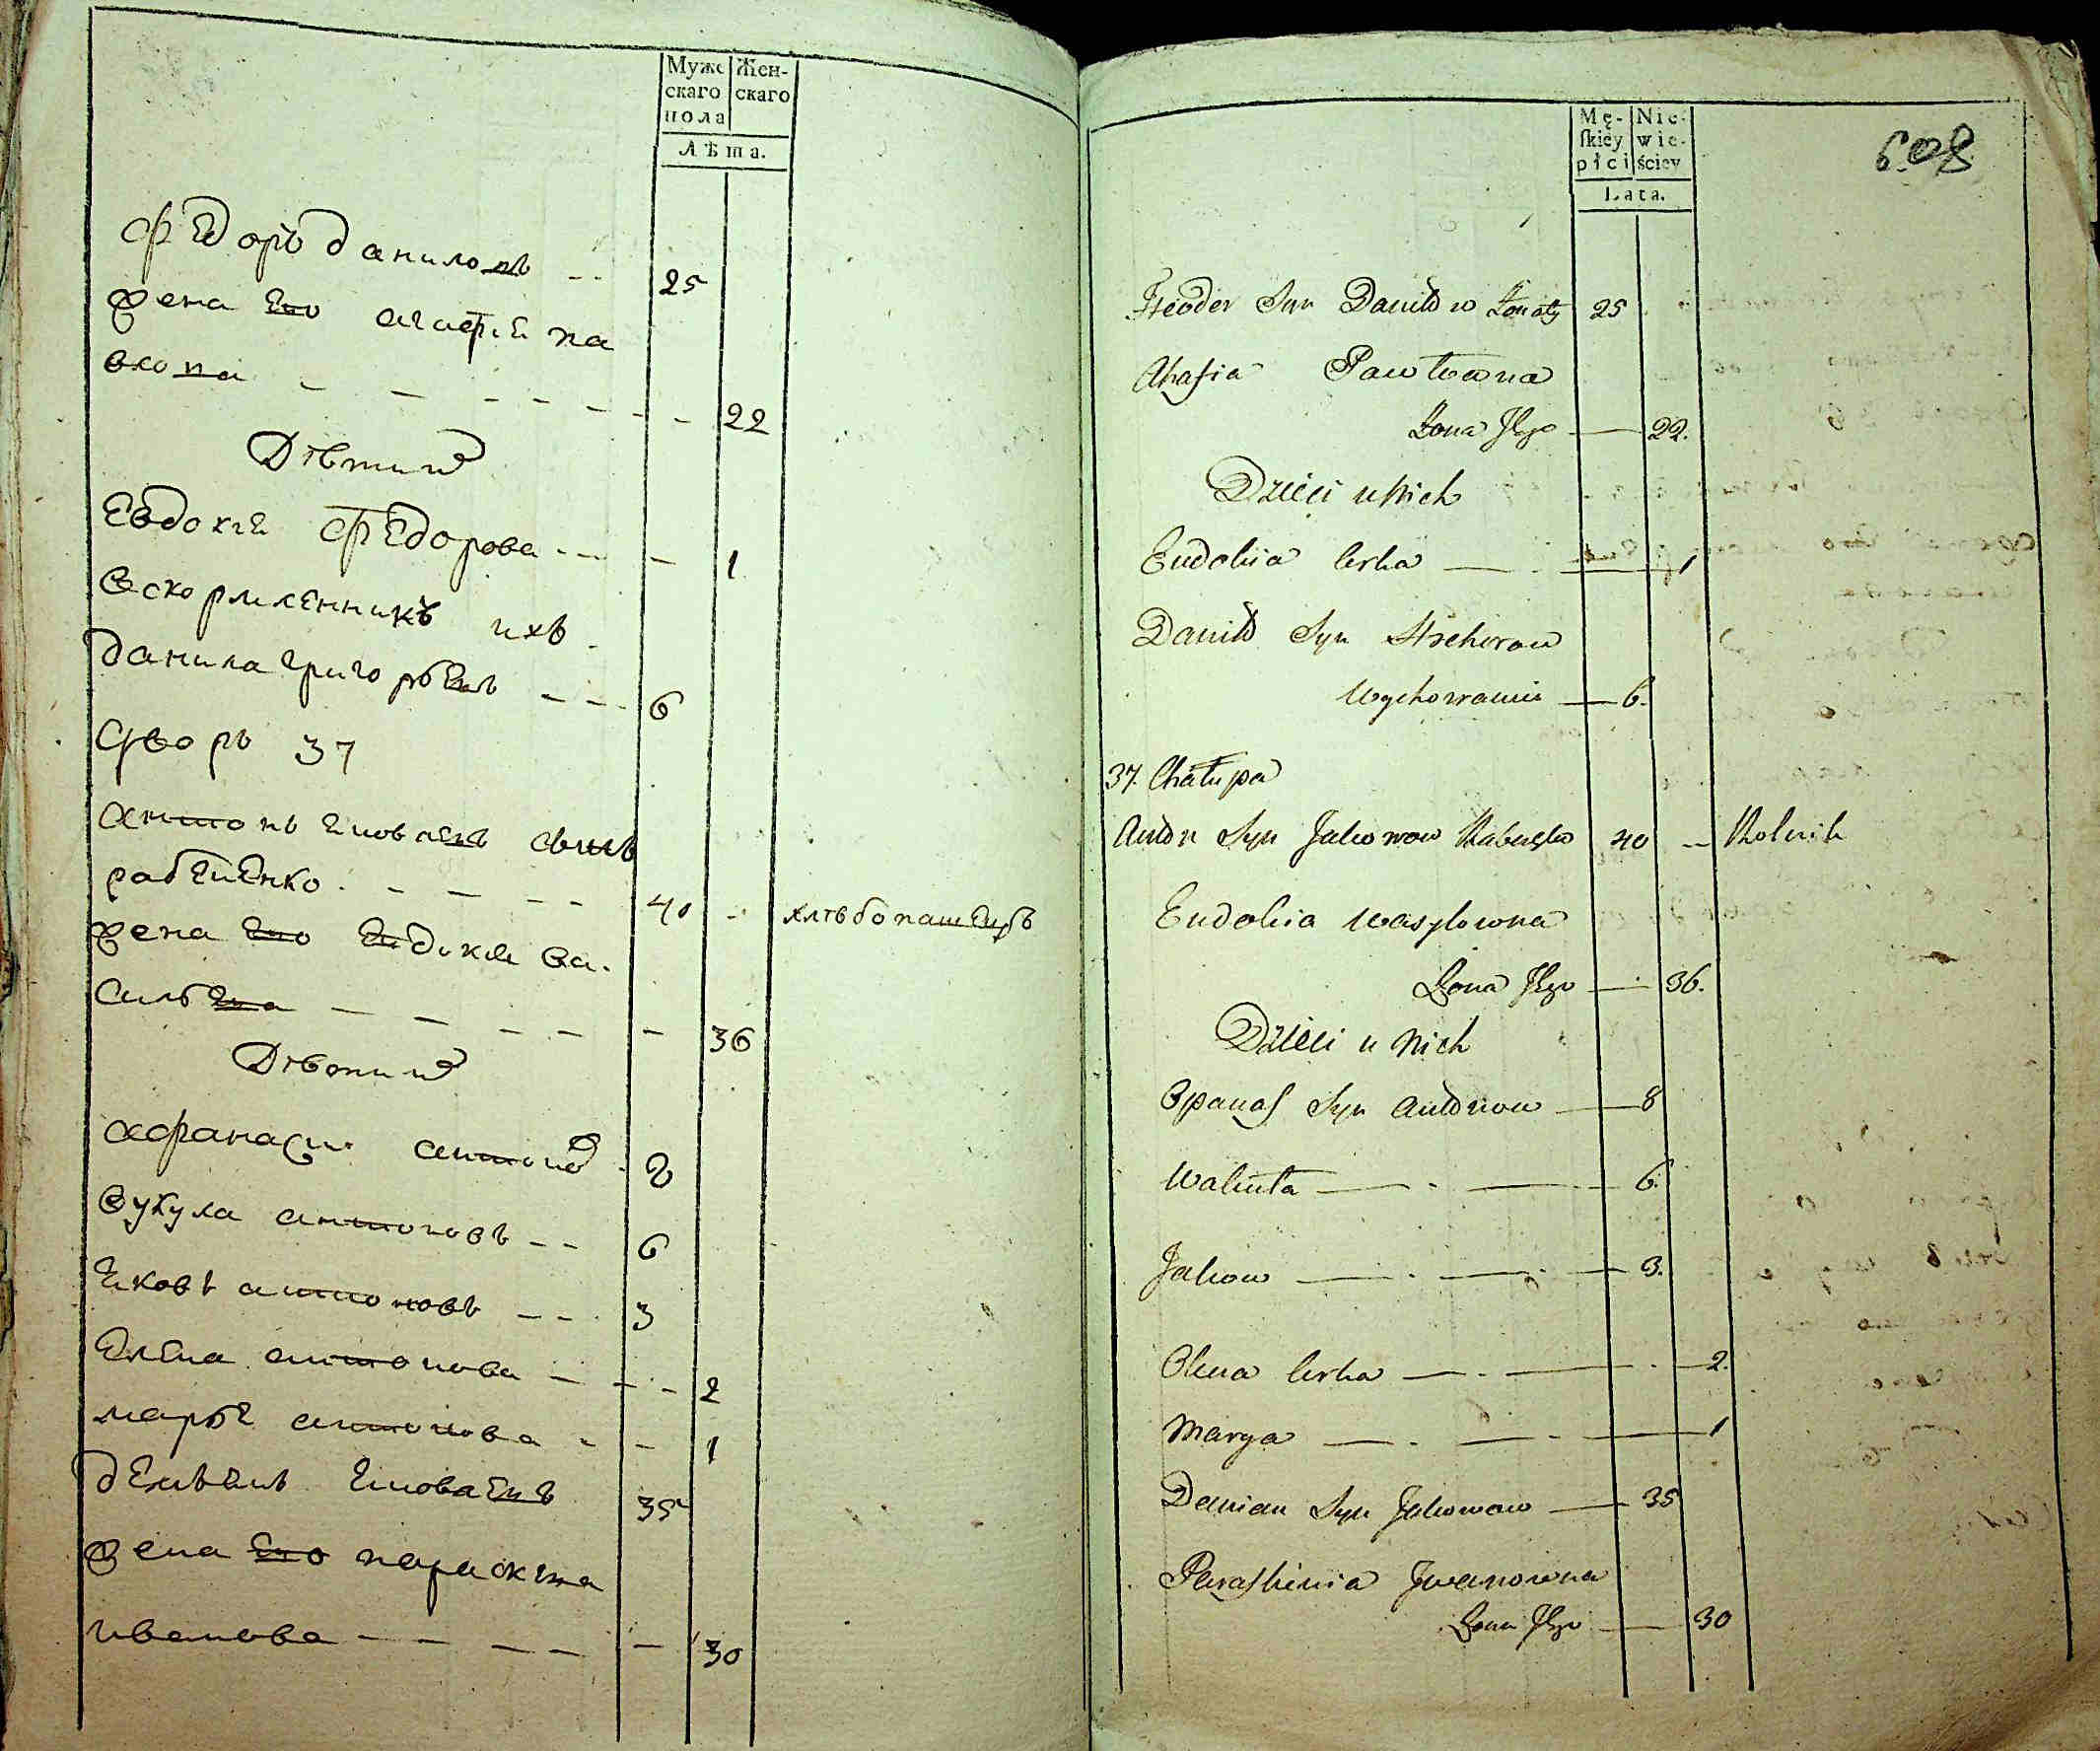 Муже
скаго
пола
Жен-
скаго
Лѣта.
Федоръ даниловъ -- 25
жена Его агафiя па
влова - - - - - - - 22
Дѣти их
Евдокия Федорова - - - 1
Воскормленникъ ихъ
данила григорьевъ - - - 6
Дворъ 37
антонъ яковлевъ сынъ
рабеиенко - - - - 40 - хлѣбопашецъ
жена Его Евдокия Ва.
сильева - - - - - 36
Дѣти их
афанаси антонов 8
Вукула антоновъ - - 6
яковъ антоновъ - - 3
Елена антонова - - - 2
марья антонова - - 1
демьянъ яковлевъ 35
жена Его параскева
иванова - - - - - 30
Mę-
skiey
płci
Nie-
wie-
ściey
Lata.
608
Theoder Syn Daniłow 25
Ahafia Pawłowna
Żona Jego — 22.
Dzieci u Nich
Eudokia Corka — 1
Daniło Syn Hrehorow
Wychowaniec — 6.
37. Chałupa
Anton Syn Jakowow 40 -- Rolnik
Eudokia Wasylowna
Żona Jego — 36.
Dzieci u Nich
Opanas Syn Antonow — 8
Wakuła — 6.
Jakow — 3.
Olena Corka — 2.
Marya — 1
Demian Syn Jakowow — 35
Paraskiewia Jwanowna
Żona Jego — 30